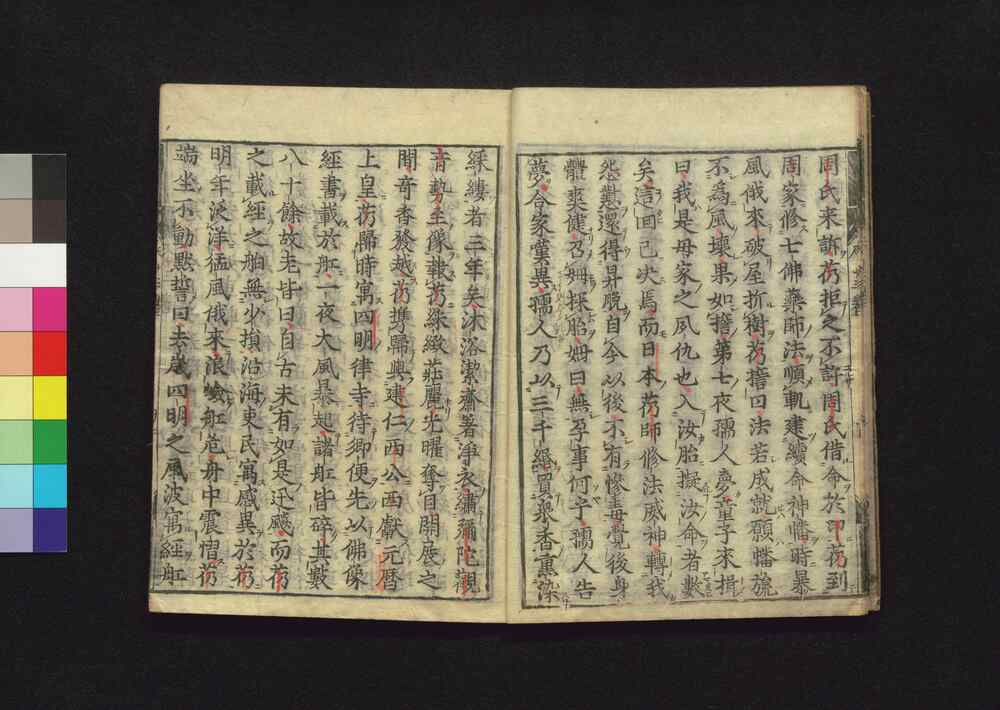 周氏来訴芿拒之不許周氏借命於卬芿到
周家修七佛藥師法順軌建續命神幡時暴
風俄來破屋折樹芿擔曰法若成就願幡旒
不為風壞果如擔第七夜孺人夢童子來揖
曰我是母家之夙仇也入汝胎擬汝命者數
矣這回已決焉而日本芿師修法威神轉我
怨懟還得昇脱自今以後不有慘毒覺後身
體爽健召姆採胎姆曰無孕事何乎孺人告
夢合家嘆異孺人乃以三千緡買衆香熏染
綵縷者三年矣沐浴潔齋著淨衣繍彌陀觀
音勢至像報芿綵緻莊麗光曜奪目開展之
間奇香發越芿携歸與建仁西公西獻元曆
上皇芿歸時寓四明律寺待郷便先以佛像
經書載於舡一夜大風暴起諸舡皆碎其數
八十餘故老皆曰自古未有如是迅飈而芿
之載經之舶無少損沿海東民寓感異於芿
明年泛洋猛風俄來浪嶮舡危舟中震慴芿
端坐不動默誓曰去歳四明之風波寓經舡